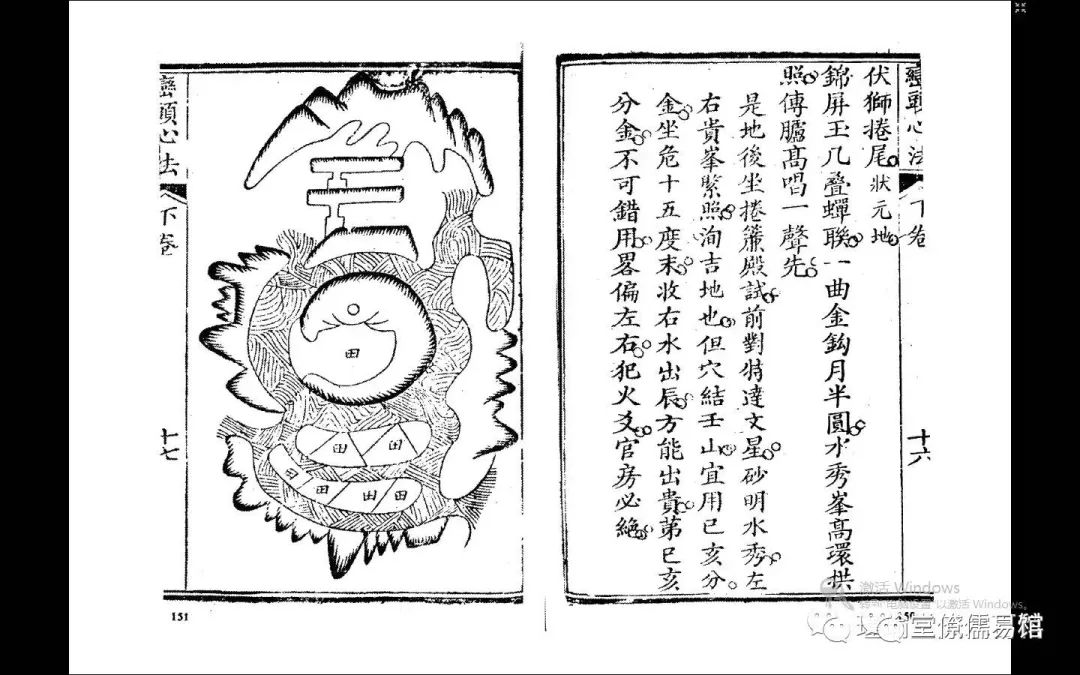 巒頭心法
下卷
十六
伏獅捲尾 狀元地
錦屏玉几疊蟬聯一曲金鈎月半圓水秀峯高環拱
照傳臚高唱一聲先
是地後坐捲簾殿試前對特達文星砂明水秀左
右貴峯緊照洵吉地也但穴結壬山宜用已亥分
金坐危十五度末收右水出辰方能出貴第已亥
分金不可錯用畧偏左右犯火爻官房必絕
田
田 田
田 田 田 田
巒頭心法
下卷
十七
151
激活 Windows
转到"电脑设置"以激活 Windows。
堂僚儒易馆